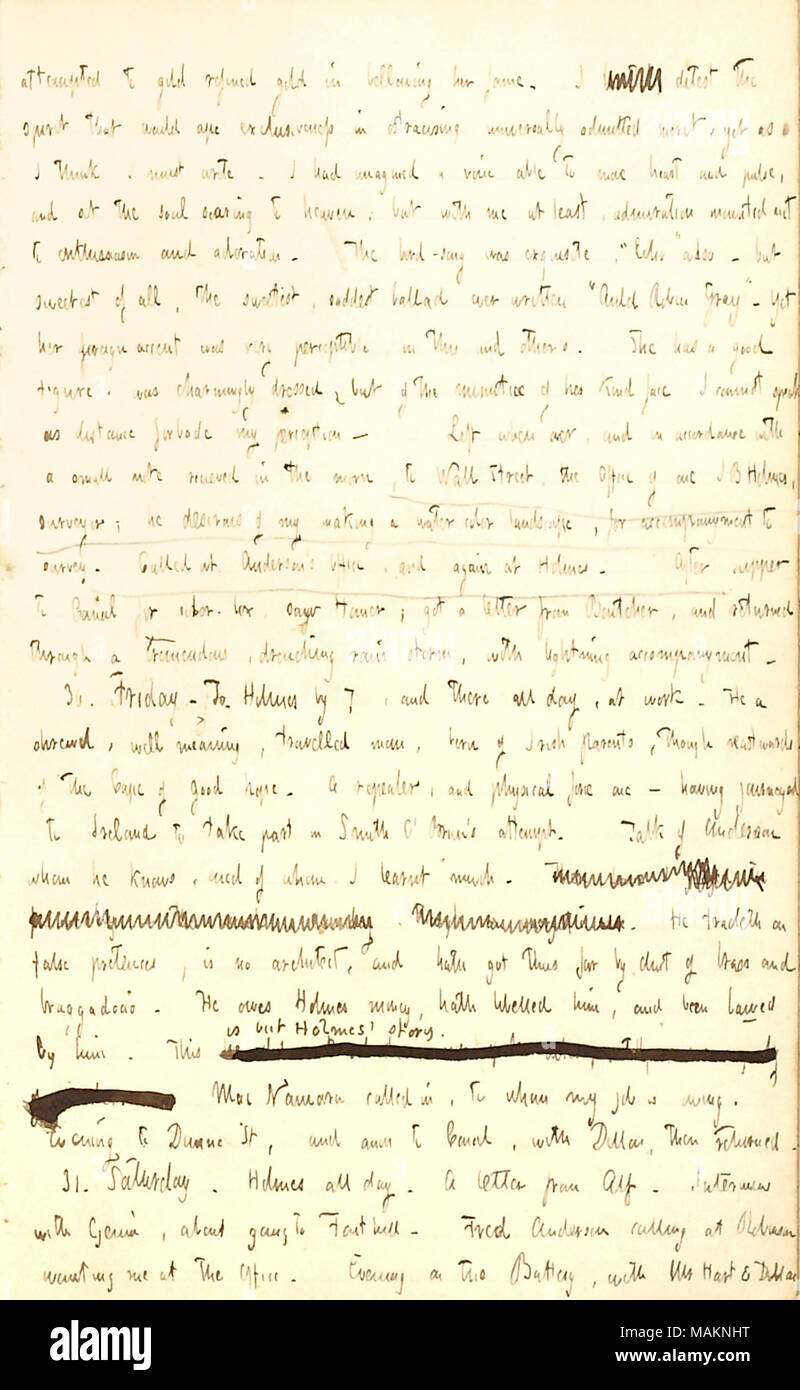 attempted to gild refined gold in bellowing her fame. I detest the
spirit that would ape exclusiveness in ostracising universally admitted merit, yet as
I think I must write. I had imagined a voice able to move heart and pulse,
and set the soul soaring to heaven; but with me at least, admiration mounted not
to enthusiasm and adoration. The bird-song was exquisite, "Echo" also - but
sweetest of all, the sweetest, saddest ballad ever written "Auld Robin Gray" - Yet
her foreign accent was very perceptible, in this and others. She has a good
figure, was charmingly dressed, but of the minutiae of her kind face I cannot speak
as distance forbade my perception - Left when over, and in accordance with
a small note recieved in the morn, to Wall Street, the Office of one J B Holmes,
surveyor; he desirous of my making a water color landscape, for accompanyment to
survey. Called at Anderson's Office, and again at Holmes. After supper
to Canal for color-box, saw Homer; got a letter from Boutcher, and returned
through a tremendous, drenching rain storm, with lightning accompanyment.
30. Friday. To Holmes by 7, and there all day, at work. He a
shrewd, well meaning, travelled man, born of Irish parents, though
of the Cape of good hope. A repealer, and physical force one - having journeyed
to Ireland to take part in Smith O'Brien's attempt. Talk of Anderson
whom he knows, and of whom I learnt much.
He tradeth on
false pretences, is no architect, and hath got thus far by dint of brass and
braggadocio. He owes Holmes money, hath libelled him, and been
is but Holmes' story.
by him. This
Mac Namara called in, to whom my job is owing.
Evening to Duane St, and anon to Canal, with Dillon, then returned.
31. Saturday. Holmes all day. A letter from Alf. Interview
with Genin, about going to Fonthill. Fred Anderson calling at Robinson
wanting me at the Office. Evening on the Battery, with Mr Hart & Dillon
alamy
Image ID: MAKNHT
www.alamy.com